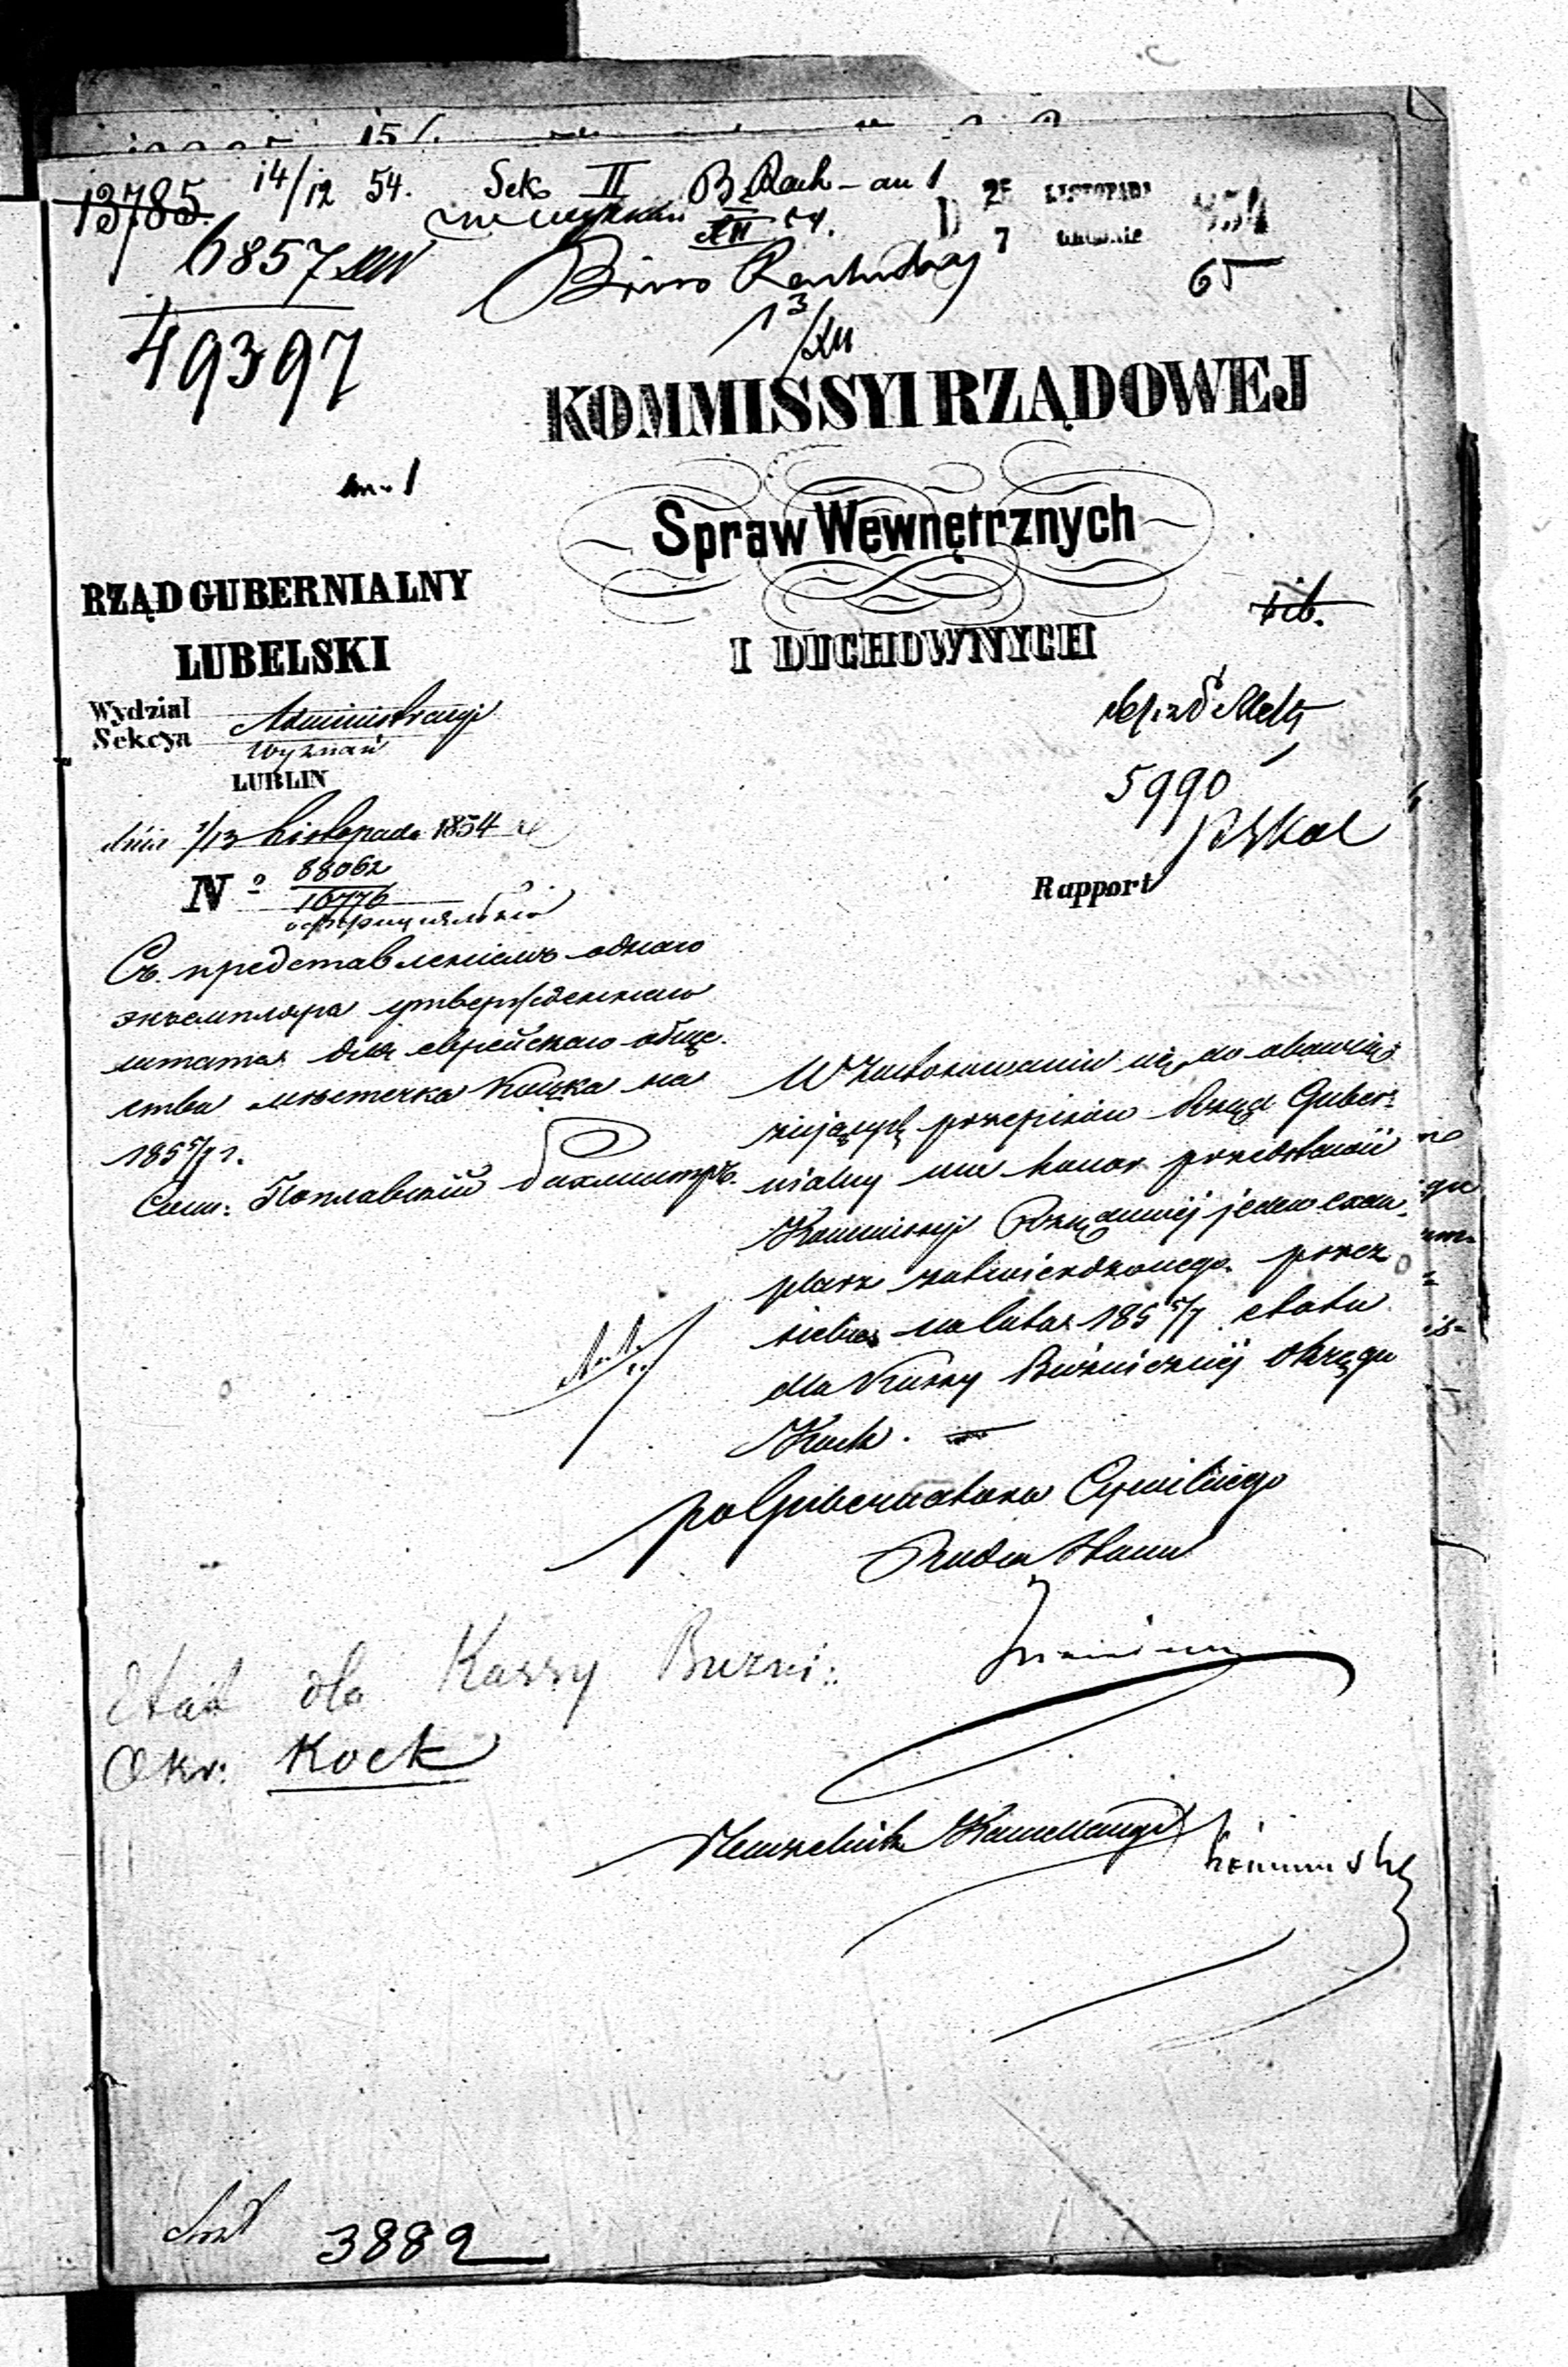 13785. 14/12 54. Sek II B. Rach - an 1
XII 54.
25 LISTOPADA 854
D 7 GRUDNIA
6857
Biuro Rachuby
65
13/XII
49397
KOMMISSYI RZĄDOWEJ
an 1
Spraw Wewnętrznych
I DUCHOWNYCH
RZĄD GUBERNIALNY
LUBELSKI
Wydział Administracyi
Sekcya Wyznań
LUBLIN
dnia 1/13 Listopada 1854
No 88062
16776
5990
Rapport
Съ представленіемъ одного
экземпляра утвержденнаго
штата для еврейскаго обще-
ства мѣстечка Коцка на
1855/7 г.
W zastosowaniu się do obowią-
zujących przepisów Rząd Guber-
nialny ma honor przedstawić
Kommissyi Rządowej jeden exem-
plarz zatwierdzonego przez
siebie na lata 1855/7 etatu
dla Kassy Bóżniczej Okręgu
Kock.
po Gubernatora Cywilnego
Radca Stanu
Etat dla Kassy Buzni:
Okr: Kock
Naczelnik Kancellaryi
3882